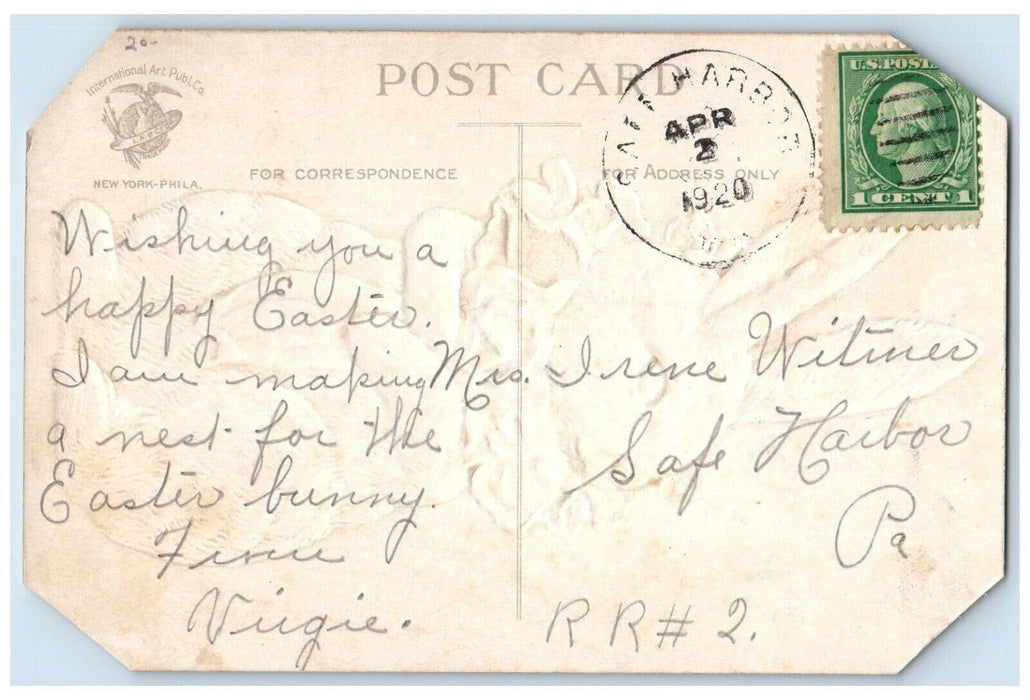 20-
International Art Publ. Co.
I.A.P.C.
NEW YORK-PHILA.
POST CARD
FOR CORRESPONDENCE
FOR ADDRESS ONLY
SAFE HARBOR
APR
2
1920
U.S. POST
1 CENT 1
Wishing you a
happy Easter.
I am making
a nest for the
Easter bunny.
From
Virgie.
Mrs. Irene Witmer
Safe Harbor
Pa
RR# 2.